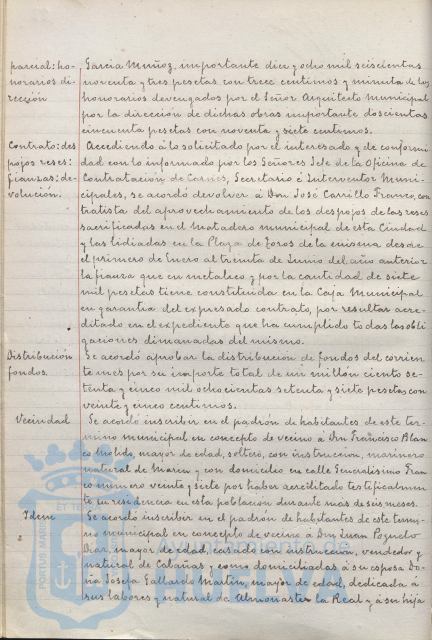 parcial: ho-
norarios di-
rección
García Muñoz, importante diez y ocho mil seiscientas
noventa y tres pesetas con trece centimos y minuta de los
honorarios devengados por el Señor Arquitecto Municipal
por la dirección de dichas obras importante doscientas
cincuenta pesetas con noventa y siete centimos.
Contrato: des
pojos reses:
fianzas: de-
volución.
Accediendo á lo solicitado por el interesado y de conformi
dad con lo informado por los Señores Jefe de la Oficina de
Contratación de Carnes, Secretario é Interventor Muni-
cipales, se acordó devolver á Don José Carrillo Franco, con
tratista del aprovechamiento de los despojos de las reses
sacrificadas en el Matadero municipal de esta Ciudad
y las lidiadas en la Plaza de Toros de la misma desde
el primero de Enero al treinta de Junio del año anterior
la fianza que en metalico y por la cantidad de siete
mil pesetas tiene constituida en la Caja Municipal
en garantia del expresado contrato, por resultar acre-
ditado en el expediente que ha cumplido todas las obli
gaciones dimanadas del mismo.
Distribución
fondos.
Se acordó aprobar la distribución de fondos del corrien
te mes por su importe total de un millón ciento se-
tenta y cinco mil ochocientas setenta y siete pesetas con
veinte y cinco centimos.
Vecindad
Se acordó inscribir en el padrón de habitantes de este ter-
mino municipal en concepto de vecino á Don Francisco Blan
co mayor de edad, soltero, con instruccion, marinero
natural de Marin y con domicilio en calle Generalisimo Fran
co numero veinte y siete por haber acreditado testificalmen
te su residencia en esta población durante más de seis meses.
Idem
Se acordó inscribir en el padrón de habitantes de este termi-
no municipal en concepto de vecino á Don Juan Pozuelo
Diaz, mayor de edad, casado con instruccion, vendedor y
natural de Cabañas y como domiciliadas á su esposa Do-
ña Josefa Gallardo Martin, mayor de edad, dedicada á
sus labores y natural de Almonaster la Real y á su hija